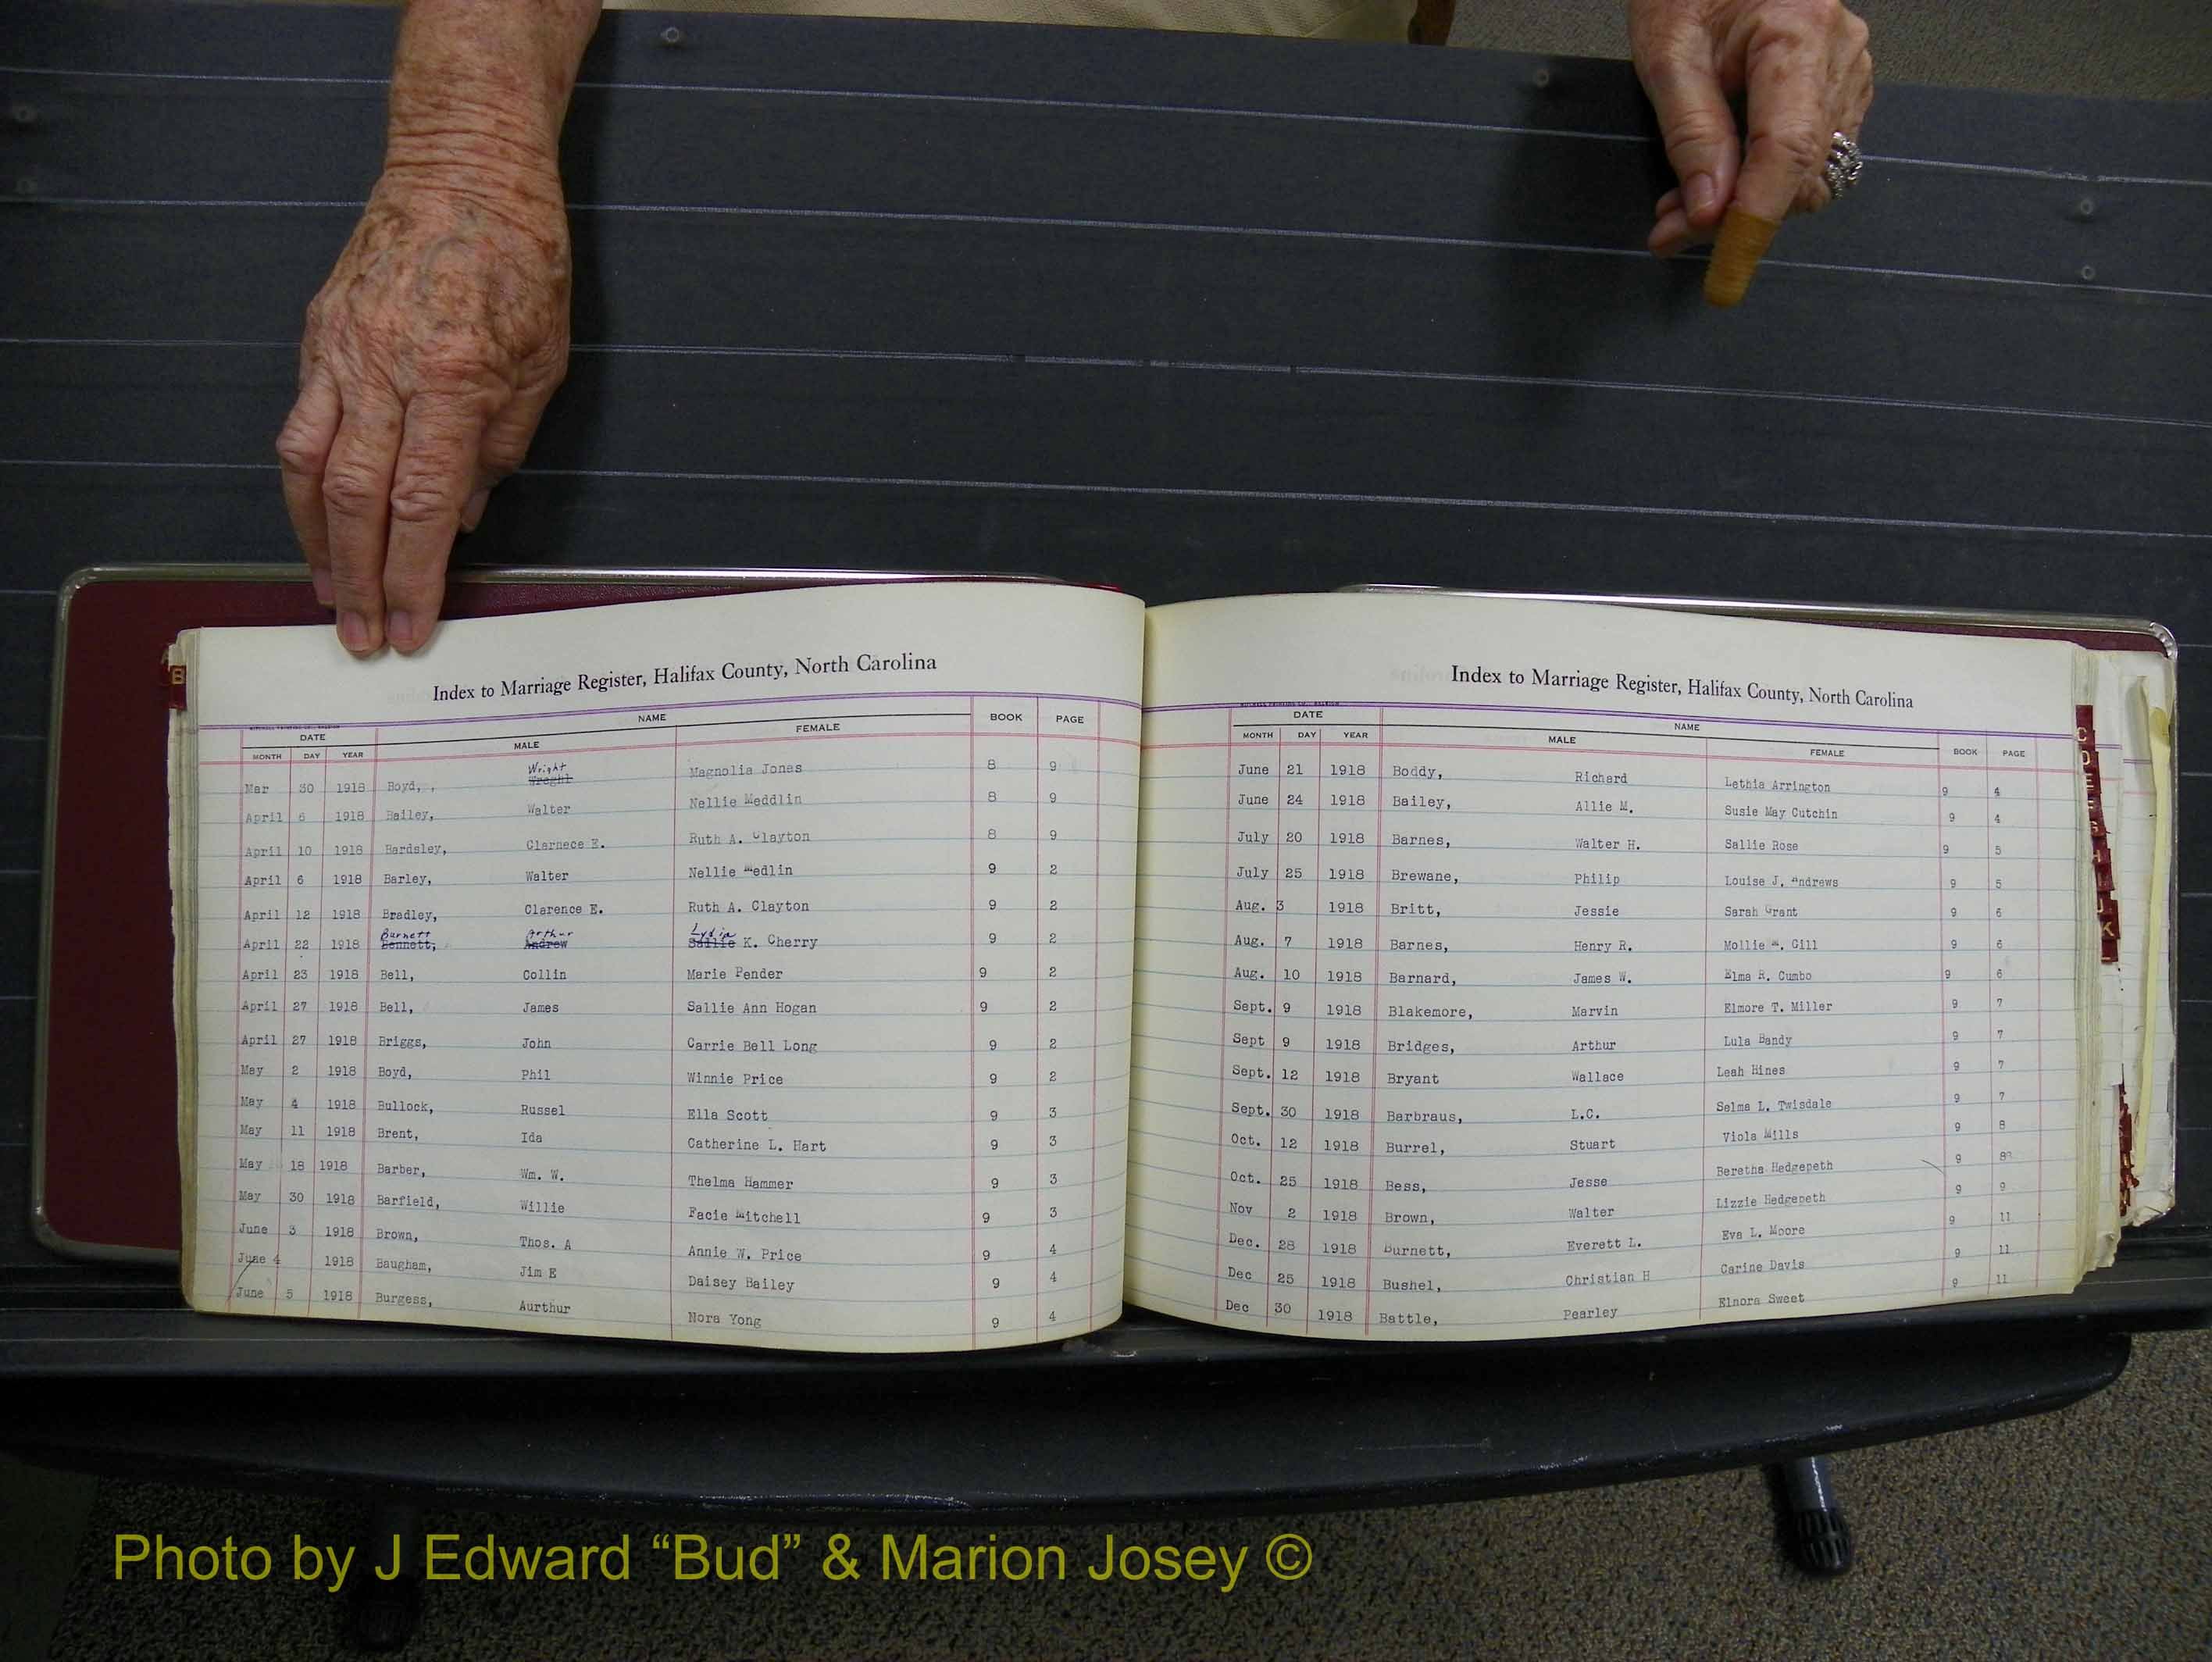 B
Index to Marriage Register, Halifax County, North Carolina
DATE NAME BOOK PAGE
MONTH DAY YEAR MALE FEMALE
Mar 30 1918 Boyd, , Wright Magnolia Jones 8 9
April 6 1918 Bailey, Walter Nellie Meddlin 8 9
April 10 1918 Bardsley, Clarnece E. Ruth A. Clayton 8 9
April 6 1918 Barley, Walter Nellie Medlin 9 2
April 12 1918 Bradley, Clarence E. Ruth A. Clayton 9 2
Burnett Arthur Lydia
April 22 1918 Bennett, Andrew Sallie K. Cherry 9 2
April 23 1918 Bell, Collin Marie Pender 9 2
April 27 1918 Bell, James Sallie Ann Hogan 9 2
April 27 1918 Briggs, John Carrie Bell Long 9 2
May 2 1918 Boyd, Phil Winnie Price 9 2
May 4 1918 Bullock, Russel Ella Scott 9 3
May 11 1918 Brent, Ida Catherine L. Hart 9 3
May 18 1918 Barber, Wm. W. Thelma Hammer 9 3
May 30 1918 Barfield, Willie Facie Mitchell 9 3
June 3 1918 Brown, Thos. A Annie W. Price 9 4
June 4 1918 Baugham, Jim E Daisey Bailey 9 4
June 5 1918 Burgess, Aurthur Nora Yong 9 4
Index to Marriage Register, Halifax County, North Carolina
DATE NAME
MONTH DAY YEAR MALE FEMALE BOOK PAGE
June 21 1918 Boddy, Richard Lethia Arrington 9 4
June 24 1918 Bailey, Allie M. Susie May Cutchin 9 4
July 20 1918 Barnes, Walter H. Sallie Rose 9 5
July 25 1918 Brewane, Philip Louise J. Andrews 9 5
Aug. 3 1918 Britt, Jessie Sarah Grant 9 6
Aug. 7 1918 Barnes, Henry R. Mollie M. Gill 9 6
Aug. 10 1918 Barnard, James W. Elma R. Cumbo 9 6
Sept. 9 1918 Blakemore, Marvin Elmore T. Miller 9 7
Sept 9 1918 Bridges, Arthur Lula Bandy 9 7
Sept. 12 1918 Bryant Wallace Leah Hines 9 7
Sept. 30 1918 Barbraus, L.C. Selma L. Twisdale 9 7
Oct. 12 1918 Burrel, Stuart Viola Mills 9 8
Oct. 25 1918 Bess, Jesse Beretha Hedgepeth 9 8
Nov 2 1918 Brown, Walter Lizzie Hedgepeth 9 9
Dec. 28 1918 Burnett, Everett L. Eva L. Moore 9 11
Dec 25 1918 Bushel, Christian H Carine Davis 9 11
Dec 30 1918 Battle, Pearley Elnora Sweet 9 11
C
D
E
H
K
Photo by J Edward “Bud” & Marion Josey ©